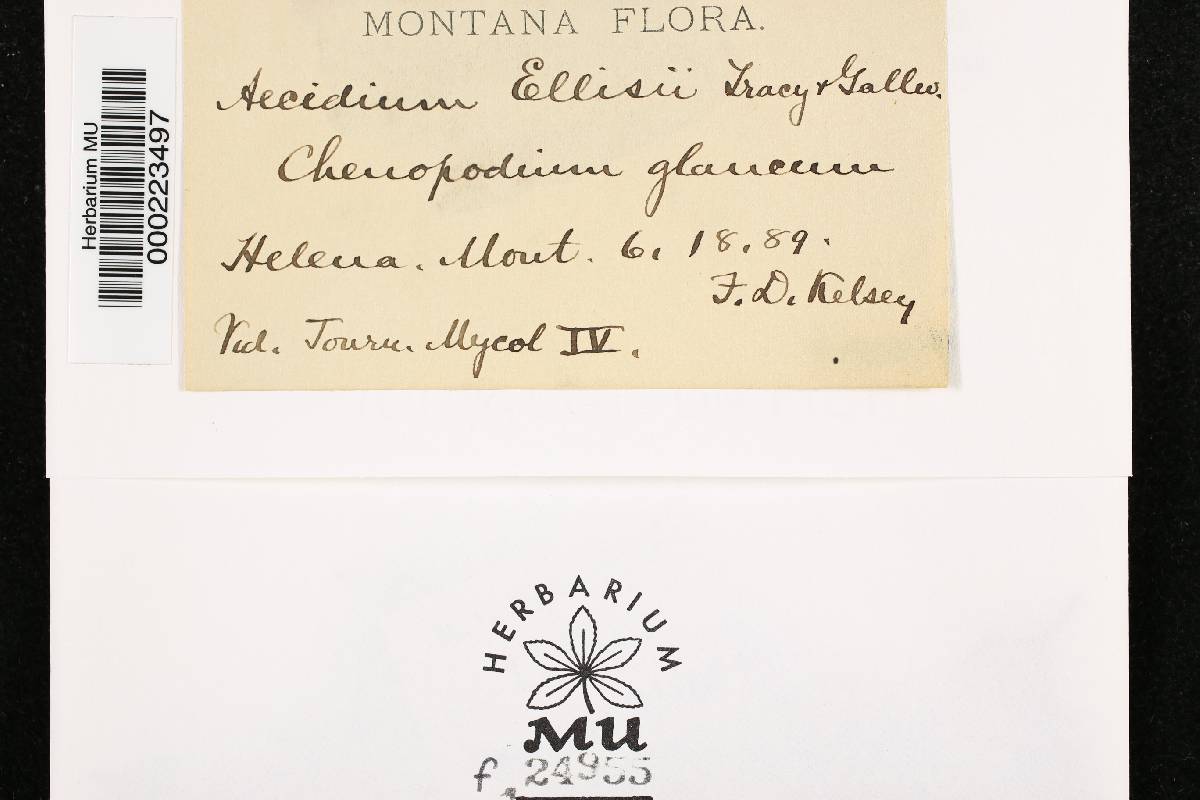 MONTANA FLORA.
Aecidium Ellisii Tracy & Gallw.
Chenopodium glaucum
Helena. Mont. 6. 18. 89.
F. D. Kelsey
Vid. Journ. Mycol IV.
Herbarium MU
000223497
HERBARIUM
MU
f. 24955